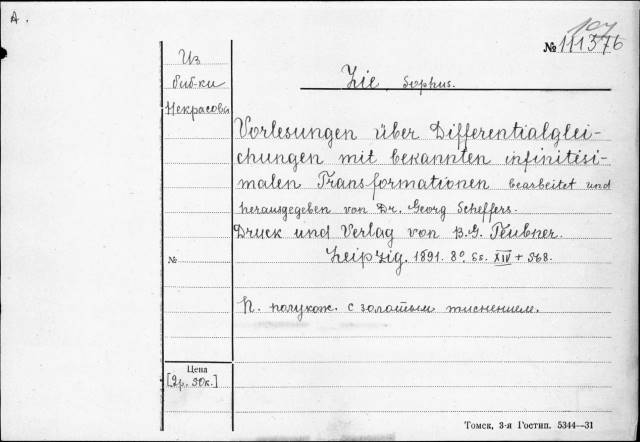 A.
107
№ 111376
Из
биб-ки
Некрасова
Lie, Sophus.
Vorlesungen über Differentialglei-
chungen mit bekannten infinitesi-
malen Transformationen bearbeitet und
herausgegeben von Dr. Georg Scheffers.
Druck und Verlag von B.G. Teubner.
Leipzig. 1891. 8°. Ss. XIV + 568.
№
П. полукож. с золотым тиснением.
Цена
[2р. 30к.]
Томск, 3-я Гостип. 5344—31